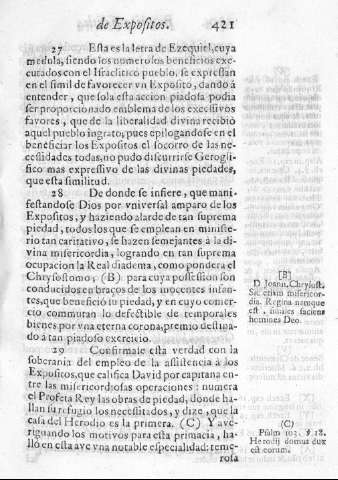 de Expositos. 421
27 Esta es la letra de Ezequiel, cuya
medula, siendo los numerosos beneficios exe-
cutados con el Israelitico pueblo, se expressan
en el simil de favorecer vn Exposito, dando à
entender, que sola esta accion piadosa podia
ser proporcionado emblema de los excessivos
favores, que de la liberalidad divina recibiò
aquel pueblo ingrato; pues epilogandose en el
beneficiar los Expositos el socorro de las ne-
cessidades todas, no pudo discurrirse Gerogli-
fico mas expressivo de las divinas piedades,
que esta similitud.
28 De donde se infiere, que mani-
festandose Dios por vniversal amparo de los
Expositos, y haziendo alarde de tan suprema
piedad, todos los que se emplean en ministe-
rio tan caritativo, se hazen semejantes à la di-
vina misericordia, logrando en tan suprema
ocupacion la Real diadema, como pondera el
Chrysostomo; (B) para cuya possession son
conducidos en braços de los inocentes infan-
tes, que beneficiò su piedad, y en cuyo comer-
cio commutan lo defectible de temporales
bienes por vna eterna corona, premio destina-
do à tan piadoso exercicio.
29 Confirmase esta verdad con la
soberania del empleo de la assistencia à los
Expositos, que califica David por capitana en-
tre las misericordiosas operaciones: numera
el Profeta Rey las obras de piedad, donde ha-
llan su refugio los necessitados, y dize, que la
casa del Herodio es la primera. (C) Y ave-
riguando los motivos para esta primacia, ha-
llò en esta ave vna notable especialidad: teme-
rosa
[B]
D. Joann. Chrysost.
Sic etiam misericor-
dia. Regina namque
est, similes faciens
homines Deo.
(C)
Psalm 103. ℣. 18.
Herodij domus dux
est eorum.